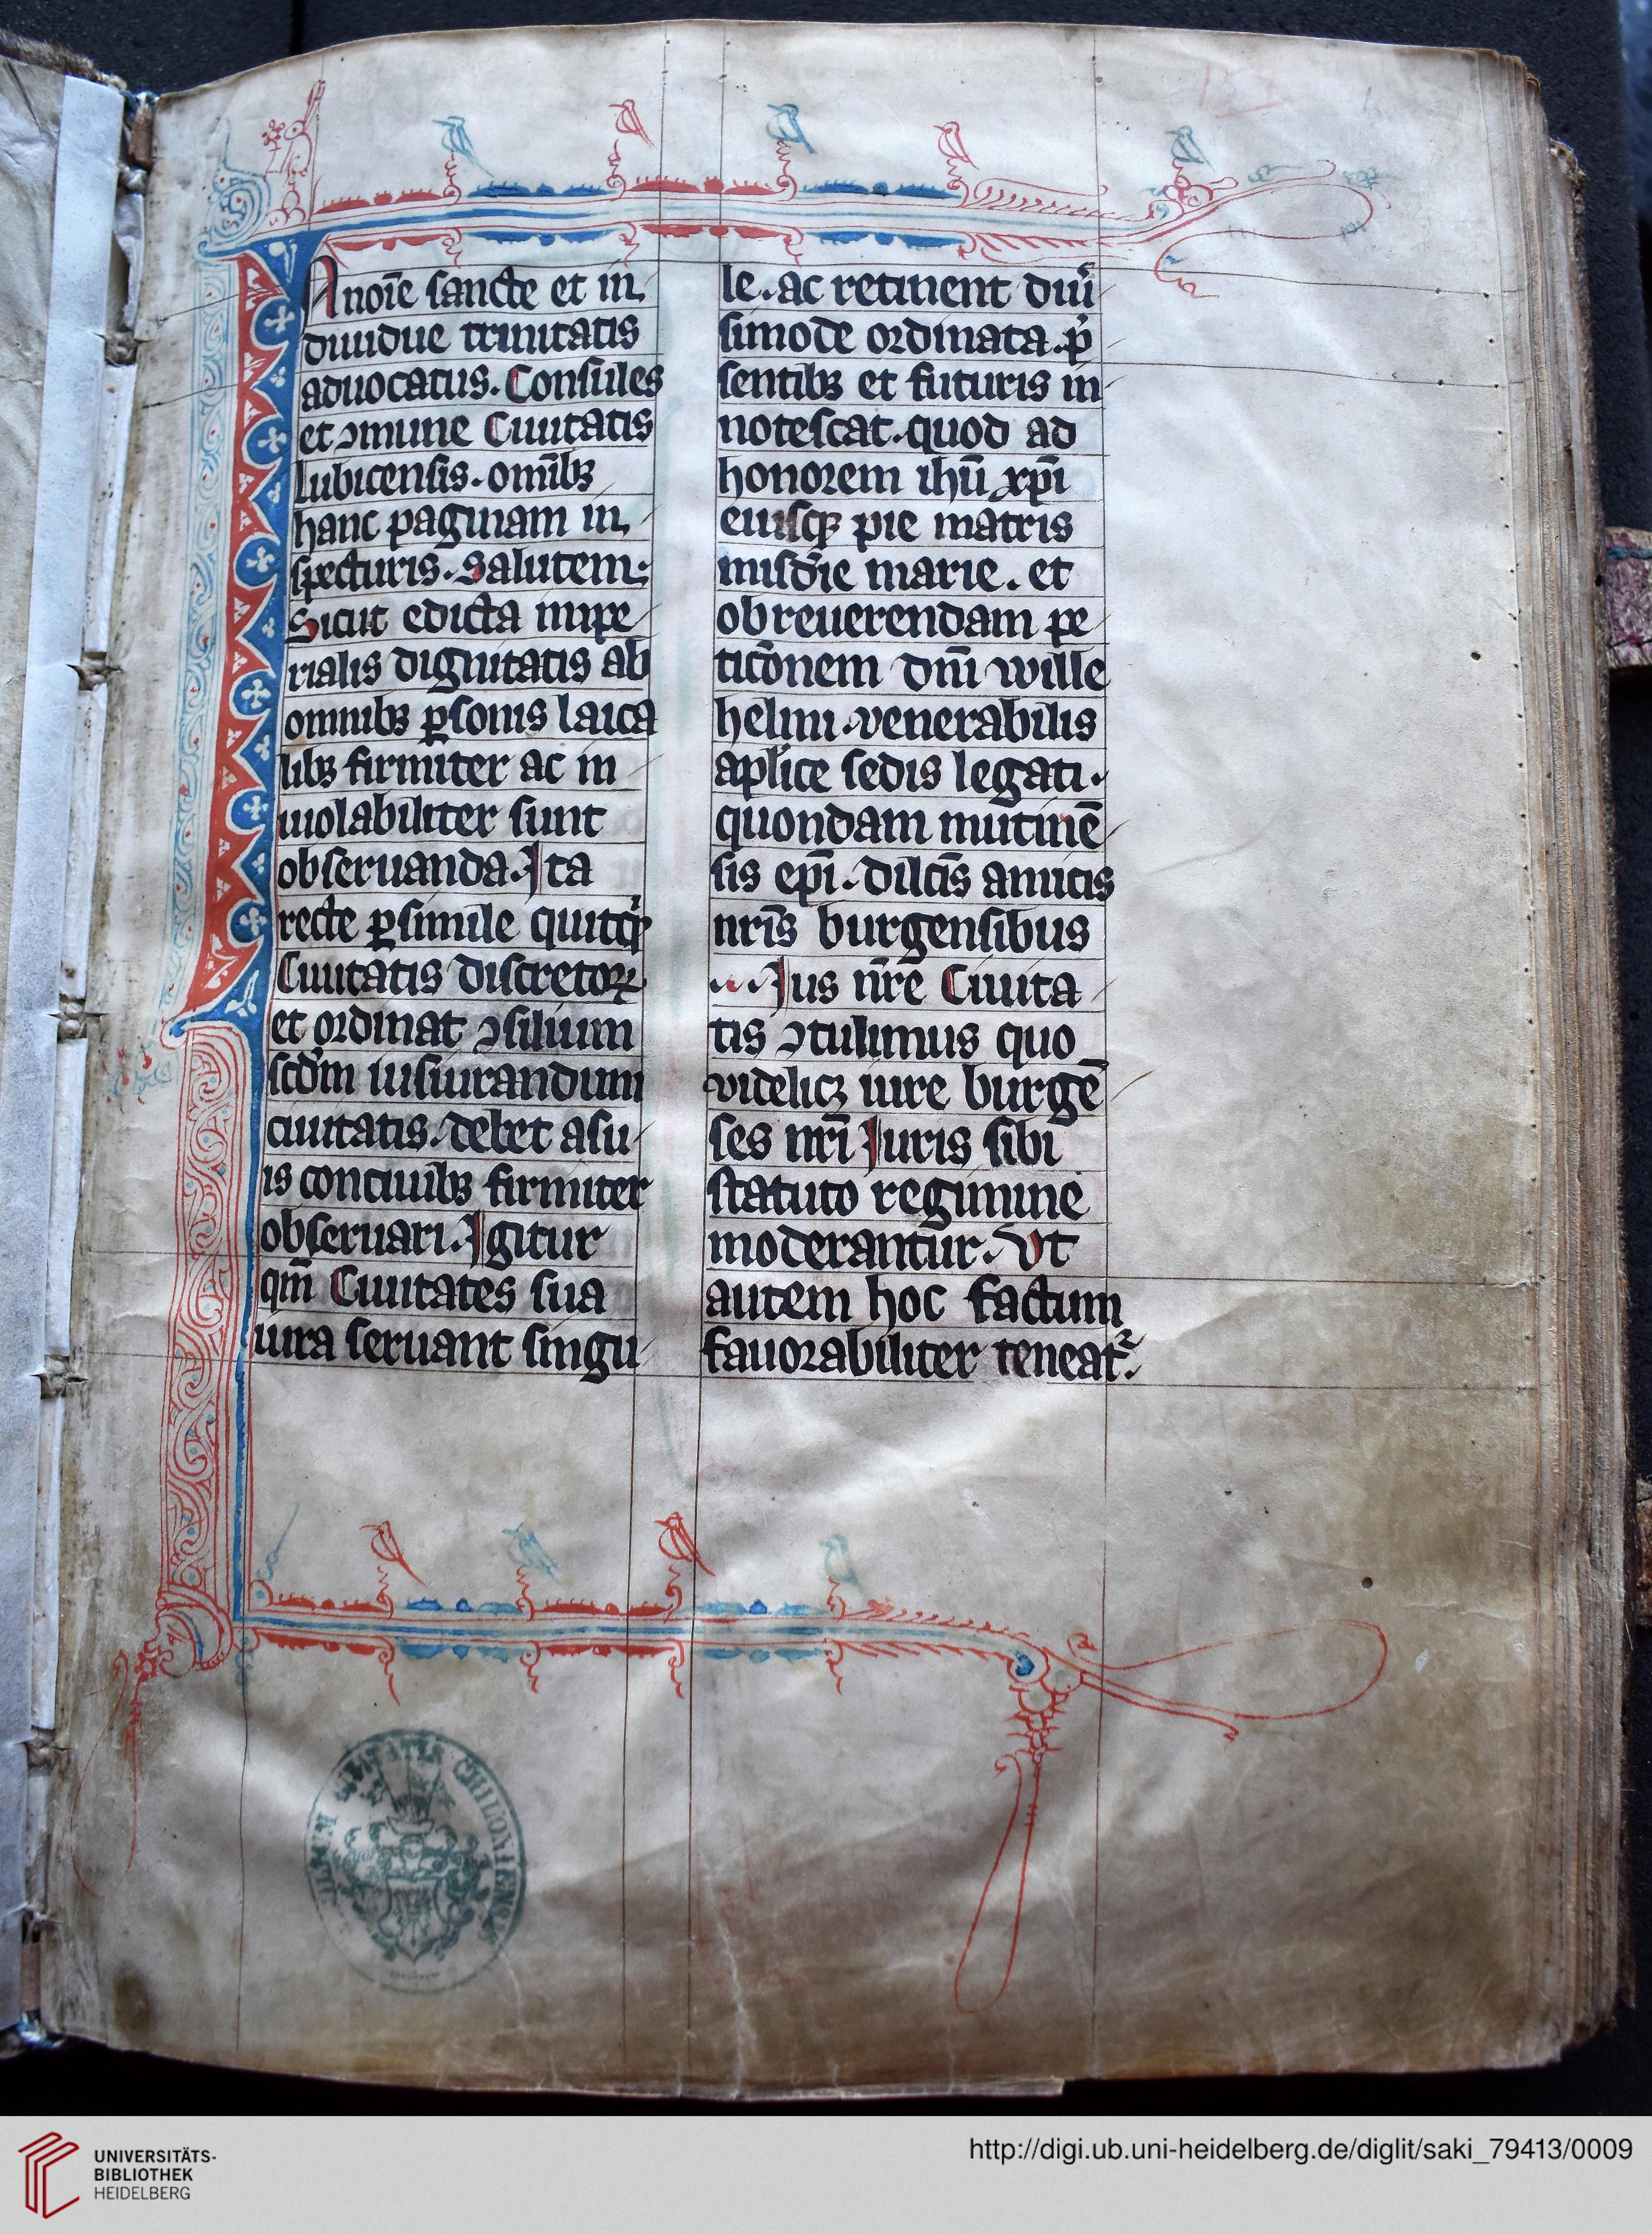 In noīe sancte et in
diuidue trinitatis
aduocatus. Consules
et ꝯmune Ciuitatis
lubicensis. omībꝫ
hanc paginam in
specturis. Salutem.
Sicut edicta impe
rialis dignitatis ab
omnibꝫ ꝑsonis laica
libꝫ firmiter ac in
uiolabiliter sunt
obseruanda. Ita
recte ꝑ simile
Ciuitatis discretoꝝ
et ordinat ꝯsilium
scd̄m iusiurandum
ciuitatis. debet a su
is conciuibꝫ firmiter
obseruari. Igitur
qm̄ Ciuitates sua
iura seruant singu
le. ac retinent diu̾
simode ordinata. p̄
sentibꝫ et futuris in
notescat. quod ad
honorem ihū xp̄i
eiusqꝫ pie matris
misd̄ie marie. et
ob reuerendam pe
tic̄onem dn̄i wille
helmi. venerabilis
apl̄ice sedis legati.
quondam mutinē
sis ep̄i. dilc̄is amicis
nr̄is burgensibus
... Ius nr̄e Ciuita
tis ꝯtulimus quo
videlicꝫ iure burgē
ses nr̄i Iuris sibi
statuto regimine
moderantur. Vt
autem hoc factum
fauorabiliter teneat᷑.
CHILONIENSIS
UNIVERSITÄTS-
BIBLIOTHEK
HEIDELBERG
http://digi.ub.uni-heidelberg.de/diglit/saki_79413/0009